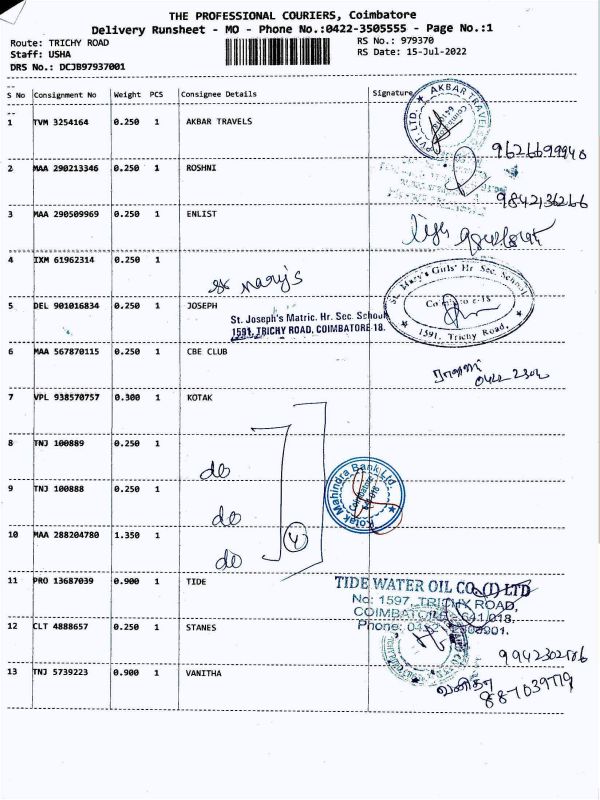 THE PROFESSIONAL COURIERS, Coimbatore
Delivery Runsheet - MO - Phone No.:0422-3505555 - Page No.:1
Route: TRICHY ROAD
Staff: USHA
DRS No.: DCJB97937001
RS No.: 979370
RS Date: 15-Jul-2022
S No Consignment No Weight PCS Consignee Details Signature
1 TVM 3254164 0.250 1 AKBAR TRAVELS
AKBAR TRAVELS
PVT. LTD.
9626699940
2 MAA 290213346 0.250 1 ROSHNI
9842136266
3 MAA 290509969 0.250 1 ENLIST
4 IXM 61962314 0.250 1
St Mary's
St. Mary's Girls' Hr Sec. School
1591, Trichy Road,
5 DEL 901016834 0.250 1 JOSEPH
St. Joseph's Matric. Hr. Sec. School
1591, TRICHY ROAD, COIMBATORE-18.
6 MAA 567870115 0.250 1 CBE CLUB
7 VPL 938570757 0.300 1 KOTAK
8 TNJ 100889 0.250 1
do
9 TNJ 100888 0.250 1
do
Kotak Mahindra Bank Ltd.
Coimbatore
10 MAA 288204780 1.350 1
do
4
11 PRO 13687039 0.900 1 TIDE
TIDE WATER OIL CO. (I) LTD
No: 1597, TRICHY ROAD,
COIMBATORE - 641 018.
12 CLT 4888657 0.250 1 STANES
Phone:
9942302786
13 TNJ 5739223 0.900 1 VANITHA
வனிதா
887039779